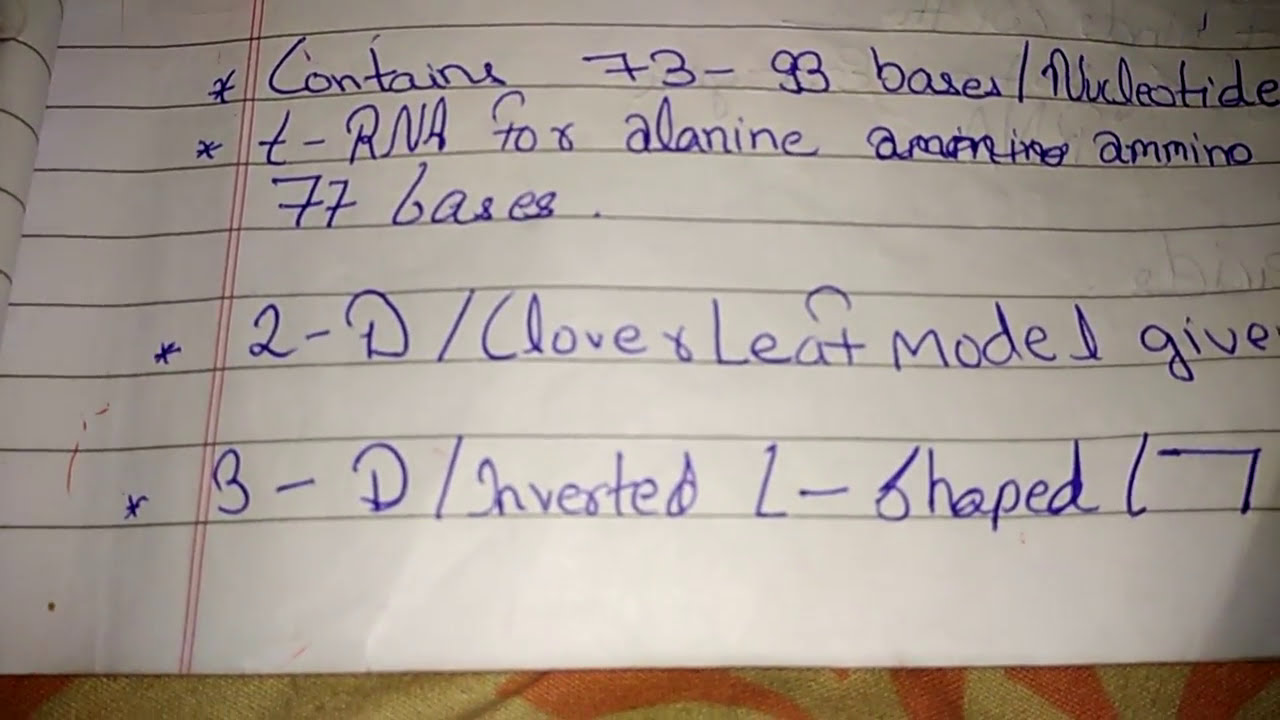 * Contains 73-93 bases/Nucleotide
* t-RNA for alanine ammino
77 bases.
* 2-D/Clover Leaf Model give
* 3-D/Inverted L-Shaped (